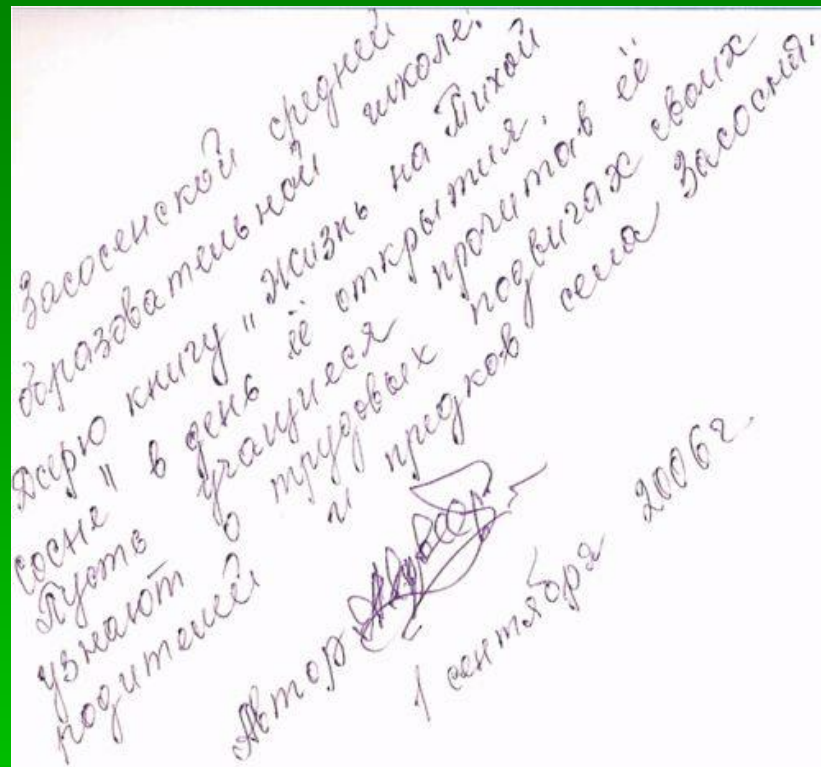 Засосенской средней
образовательной школе.
Дарю книгу „Жизнь на Тихой
сосне" в день её открытия.
Пусть учащиеся прочитав её
узнают о трудовых подвигах своих
родителей и предков села Засосня.
Автор
1 сентября 2006г.